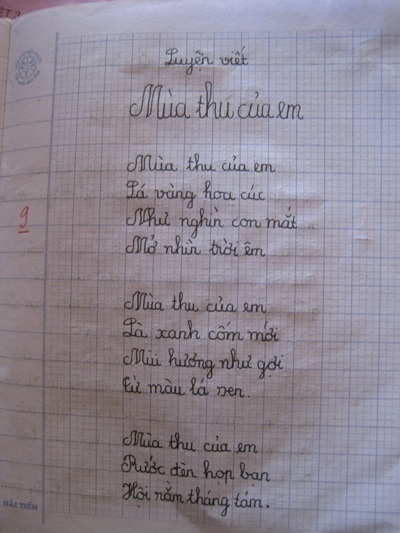 ỆT 3
Luyện viết
Mùa thu của em
Mùa thu của em
Lá vàng hoa cúc
Như nghìn con mắt
9
Mở nhìn trời êm
Mùa thu của em
Là xanh cốm mới
Mùi hương như gợi
Từ màu lá sen.
Mùa thu của em
Rước đèn họp bạn
Hội rằm tháng tám.
HẢI TIẾN